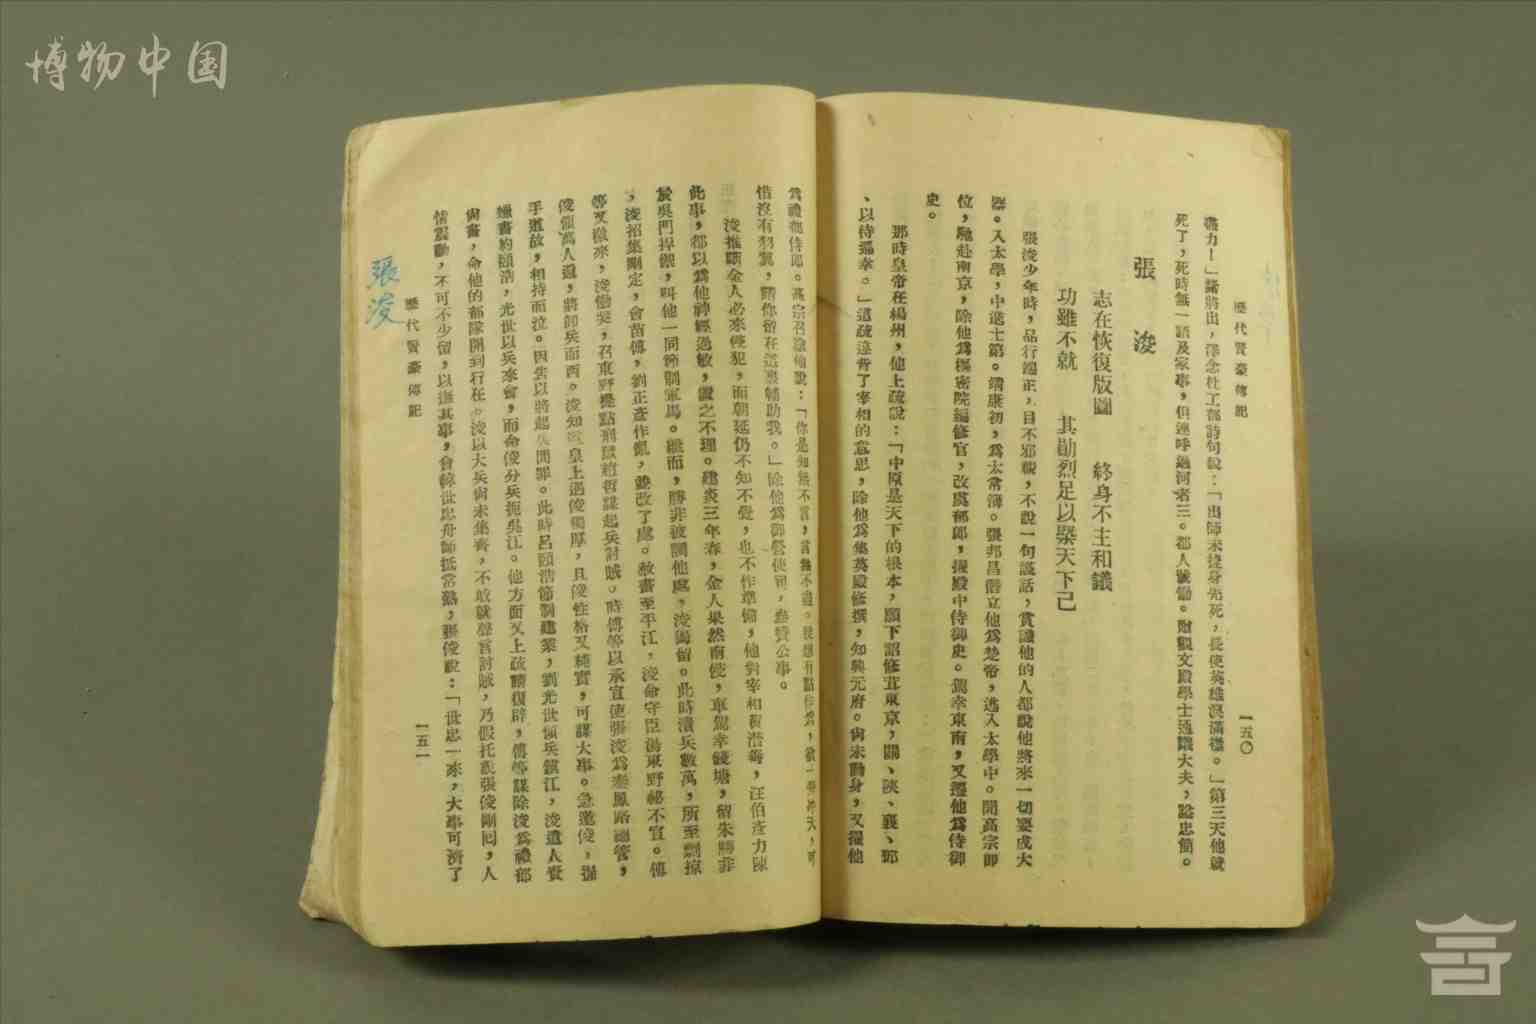 博物中国
歷代賢豪傳記
一五〇
盡力！」諸將出，澤念杜工部詩句說：「出師未捷身先死，長使英雄淚滿襟。」第三天他就
死了，死時無一語及家事，但連呼過河者三。都人號慟。贈觀文殿學士通議大夫，諡忠簡。
張浚
志在恢復版圖　終身不主和議
功雖不就　其勛烈足以槩天下己
張浚少年時，品行端正，目不邪視，不說一句謊話，賞識他的人都說他將來一切要成大
器。入太學，中進士第。靖康初，爲太常簿。張邦昌僭立他爲楚帝，逃入太學中。聞高宗卽
位，馳赴南京，除他爲樞密院編修官，改虞部郎，擢殿中侍御史。駕幸東南，又遷他爲侍御
史。
那時皇帝在揚州，他上疏說：「中原是天下的根本，願下詔修葺東京，關、陝、襄、鄧
、以待巡幸。」這疏違背了宰相的意思，除他爲集英殿修撰，知興元府。尙未動身，又擢他
爲禮部侍郎。高宗召諭他說：「你是知無不言，言無不盡。
惜沒有羽翼，請你留在這裏輔助我。」除他爲御營使司，參贊公事。
浚推斷金人必來侵犯，而朝廷仍不知不覺，也不作準備，他對宰相黃潛善，汪伯彥力陳
此事，都以爲他神經過敏，置之不理。建炎三年春，金人果然南侵，車駕幸錢塘，留朱勝非
於吳門捍禦，叫他一同節制軍馬。繼而，勝非被調他處，浚獨留。此時潰兵數萬，所至剽掠
，浚招集剛定，會苗傅，劉正彥作亂，並改了處。赦書至平江，浚命守臣湯東野祕不宣。傅
等又檄來，浚慟哭，召東野提點刑獄趙哲謀起兵討賊。時傅等以承宣使張浚爲秦鳳路總管，
俊領萬人還，將卸兵而西。浚知皇上遇俊獨厚，且俊性格又純實，可謀大事。急邀俊，握
手道故，相持而泣。因告以將起兵問罪。此時呂頤浩節制建業，劉光世領兵鎮江，浚遣人賫
蠟書約頤浩，光世以兵來會，而命俊分兵扼吳江。他方面又上疏請復辟，傅等謀除浚爲禮部
尙書，命他的部隊開到行在。浚以大兵尙未集齊，不敢就聲言討賊，乃假托說張俊剛囘，人
情震動，不可不少留，以撫其事，會韓世忠舟師抵常熟，張俊說：「世忠一來，大事可濟了
歷代賢豪傳記
一五一
張浚